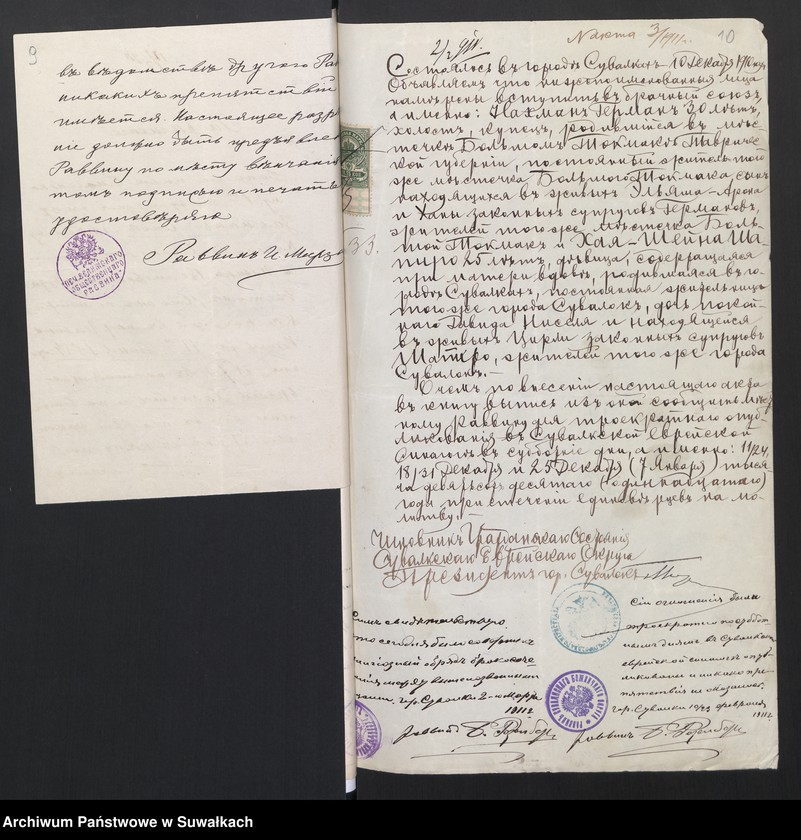 9
въ вѣдомствѣ другого
никакихъ препятствій
имѣется. Настоящее
должно быть
Раввину по мѣсту вѣнчанія
подписью и печатью
удостовѣряю
Раввинъ
10
N акта 3/1911 г.
Состоялось въ городѣ Сувалкахъ 10 Декабря 1910 года
Объявляемъ что нижепоименованныя лица
намѣрены вступить въ брачный союзъ,
а именно: Нахманъ Германъ 30 лѣтъ,
холостъ, купецъ, родившійся въ мѣс-
течкѣ Большомъ Токмакѣ Тавричес-
кой губерніи, постоянный житель того
же мѣстечка Большого Токмака, сынъ
находящихся въ живыхъ Эльяна-Арона
и Ханы законныхъ супруговъ Германовъ,
жителей того же мѣстечка Боль-
шой Токмакъ и Хая-Шейна Ша-
пиро 25 лѣтъ, дѣвица, содержащаяся
при матери вдовѣ, родившаяся въ го-
родѣ Сувалкахъ, постоянная жительница
того же города Сувалокъ, дочь покой-
наго Давида Ниселя и находящейся
въ живыхъ Цирли законныхъ супруговъ
Шапиро, жителей того же города
Сувалокъ.-
О чемъ по внесеніи настоящаго акта
въ книгу выпись изъ оной сообщить мѣст-
ному Раввину для троекратнаго опуб-
ликованія въ Сувалкской Еврейской
Синагогѣ въ субботніе дни, а именно: 11/24,
18/31 Декабря и 25 Декабря (7 Января) тыся-
ча девятьсотъ десятаго (одиннадцатаго)
года при стеченіи единовѣрцевъ на мо-
литву.-
Чиновникъ Гражданскаго Состоянія
Сувалкскаго Еврейскаго Округа
Президентъ гор. Сувалокъ
Симъ свидѣтельствую,
что сегодня было совершено
обрядъ бракосоче-
танія между вышеозначенными
гор. Сувалки 2-го Марта
1911 г.
Раввинъ
Сіи оглашенія были
троекратно по суббот-
нымъ днямъ въ Сувалкской
еврейской синагогѣ опуб-
ликованы и никакихъ пре-
пятствій не оказалось.
гор. Сувалки февраля
1911 г.
Раввинъ
Archiwum Państwowe w Suwałkach